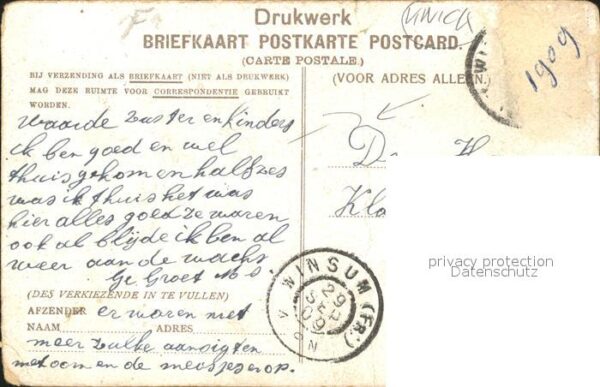 Drukwerk
BRIEFKAART POSTKARTE POSTCARD.
(CARTE POSTALE.)
BIJ VERZENDING ALS BRIEFKAART (NIET ALS DRUKWERK)
MAG DEZE RUIMTE VOOR CORRESPONDENTIE GEBRUIKT
WORDEN.
(VOOR ADRES ALLEEN.)
1909
Waarde Zuster en kinders
ik ben goed en wel
thuis gekomen half zes
was ik thuis het was
hier alles goed ze waren
ook al blijde ik ben al
weer aan de wacht
Ge Groet
(DES VERKIEZENDE IN TE VULLEN)
AFZENDER er waren niet
NAAM ADRES
meer zulke aanzigten
met oom en de meesjes erop.
WINSUM (FR.)
privacy protection
Datenschutz